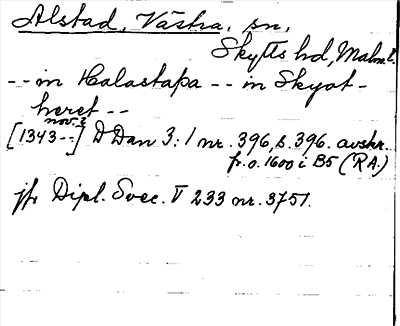 Alstad, Västra, sn,
Skytts hd, Malm. l.
-- in Halastapa -- in Skyot-
heret --
nov. ?
[1343--] D Dan 3:1 nr. 396, s. 396. avskr.
fr. o. 1600 i B5 (RA)
jfr Dipl. Svec. V 233 nr. 3751.